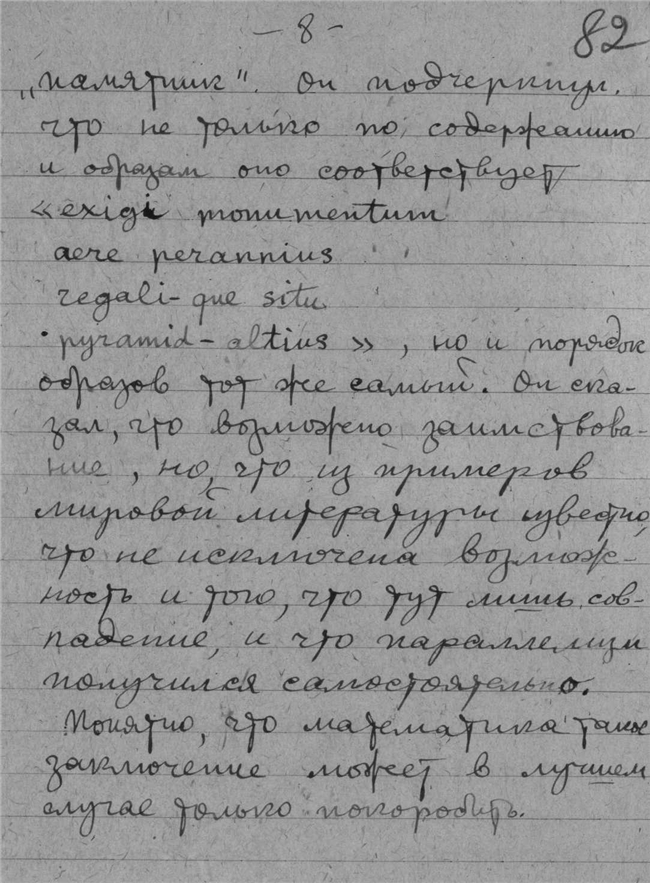 - 8 -
82
„памятник". Он подчеркнул,
что не только по содержанию
и образам оно соответствует
«exigi monumentum
aere perannius
regali-que situ
pyramid-altius», но и порядок
образов тот же самый. Он ска-
зал, что возможно заимствова-
ние, но, что из примеров
мировой литературы известно,
что не исключена возмож-
ность и того, что тут лишь сов-
падение, и что параллелизм
получился самостоятельно.
Понятно, что математика такое
заключение может в лучшем
случае только покоробить.